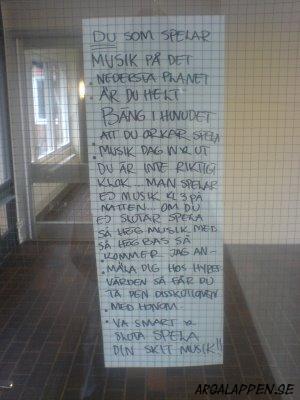 DU SOM SPELAR
MUSIK PÅ DET
NEDERSTA PLANET
ÄR DU HELT
BÄNG I HUVUDET
ATT DU ORKAR SPELA
MUSIK DAG IN & UT
DU ÄR INTE RIKTIGT
KLOK... MAN SPELAR
EJ MUSIK KL 3 PÅ
NATTEN... OM DU
EJ SLUTAR SPELA
SÅ HÖG MUSIK MED
SÅ HÖG BAS SÅ
KOMMER JAG AN-
MÄLA DIG HOS HYRES
VÄRDEN SÅ FÅR DU
TA DEN DISSKUTIONEN
MED HONOM
VA SMART &
SLUTA SPELA
DIN SKIT MUSIK!!
ARGALAPPEN.SE